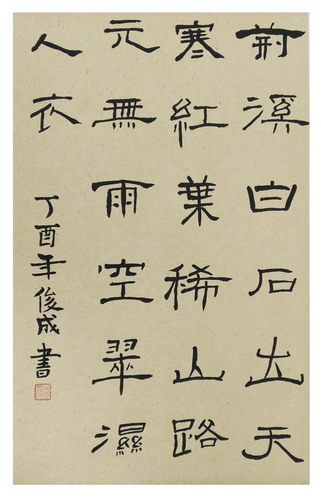 荊溪白石出天
寒紅葉稀山路
元無雨空翠濕
人衣
丁酉年俊成書